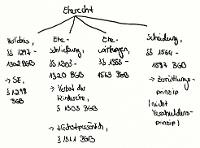 Eherecht
Verlöbnis,
§§ 1297 -
1302 BGB
→ SE,
§ 1298
BGB
Ehe-
schließung,
§§ 1303 -
1320 BGB
→ Verbot der
Kinderehe,
§ 1303 BGB
→ Höchstpersönlich,
§ 1311 BGB
Ehe-
wirkungen,
§§ 1353 -
1563 BGB
Scheidung,
§§ 1564 -
1587 BGB
→ Zerrüttungs-
prinzip
(nicht
Verschuldens-
prinzip)